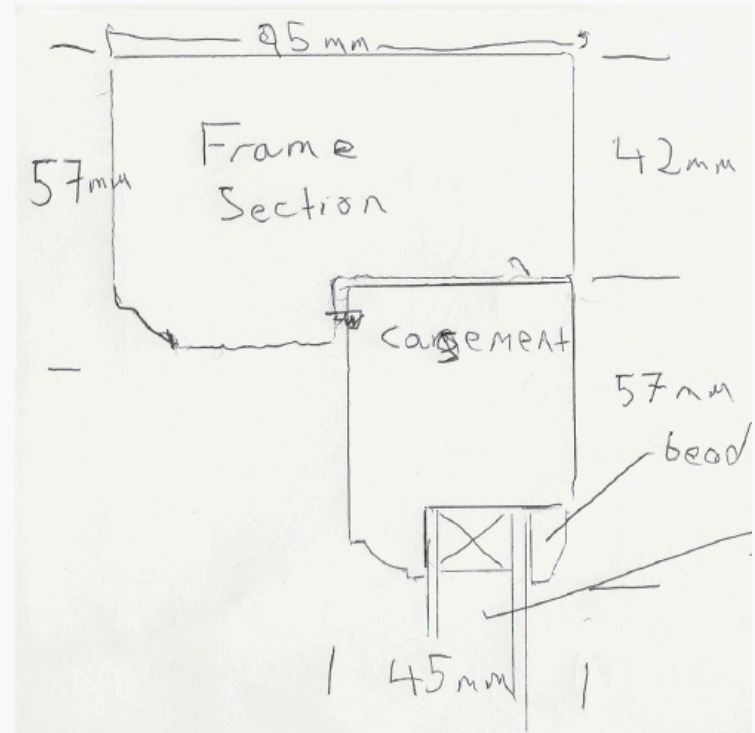 95 mm
Frame
Section
57mm
42mm
casement
57mm
bead
45mm